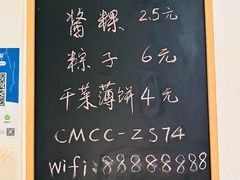 酱粿 2.5元
粽子 6元
干菜薄饼 4元
CMCC-ZS74
Wifi:88888888